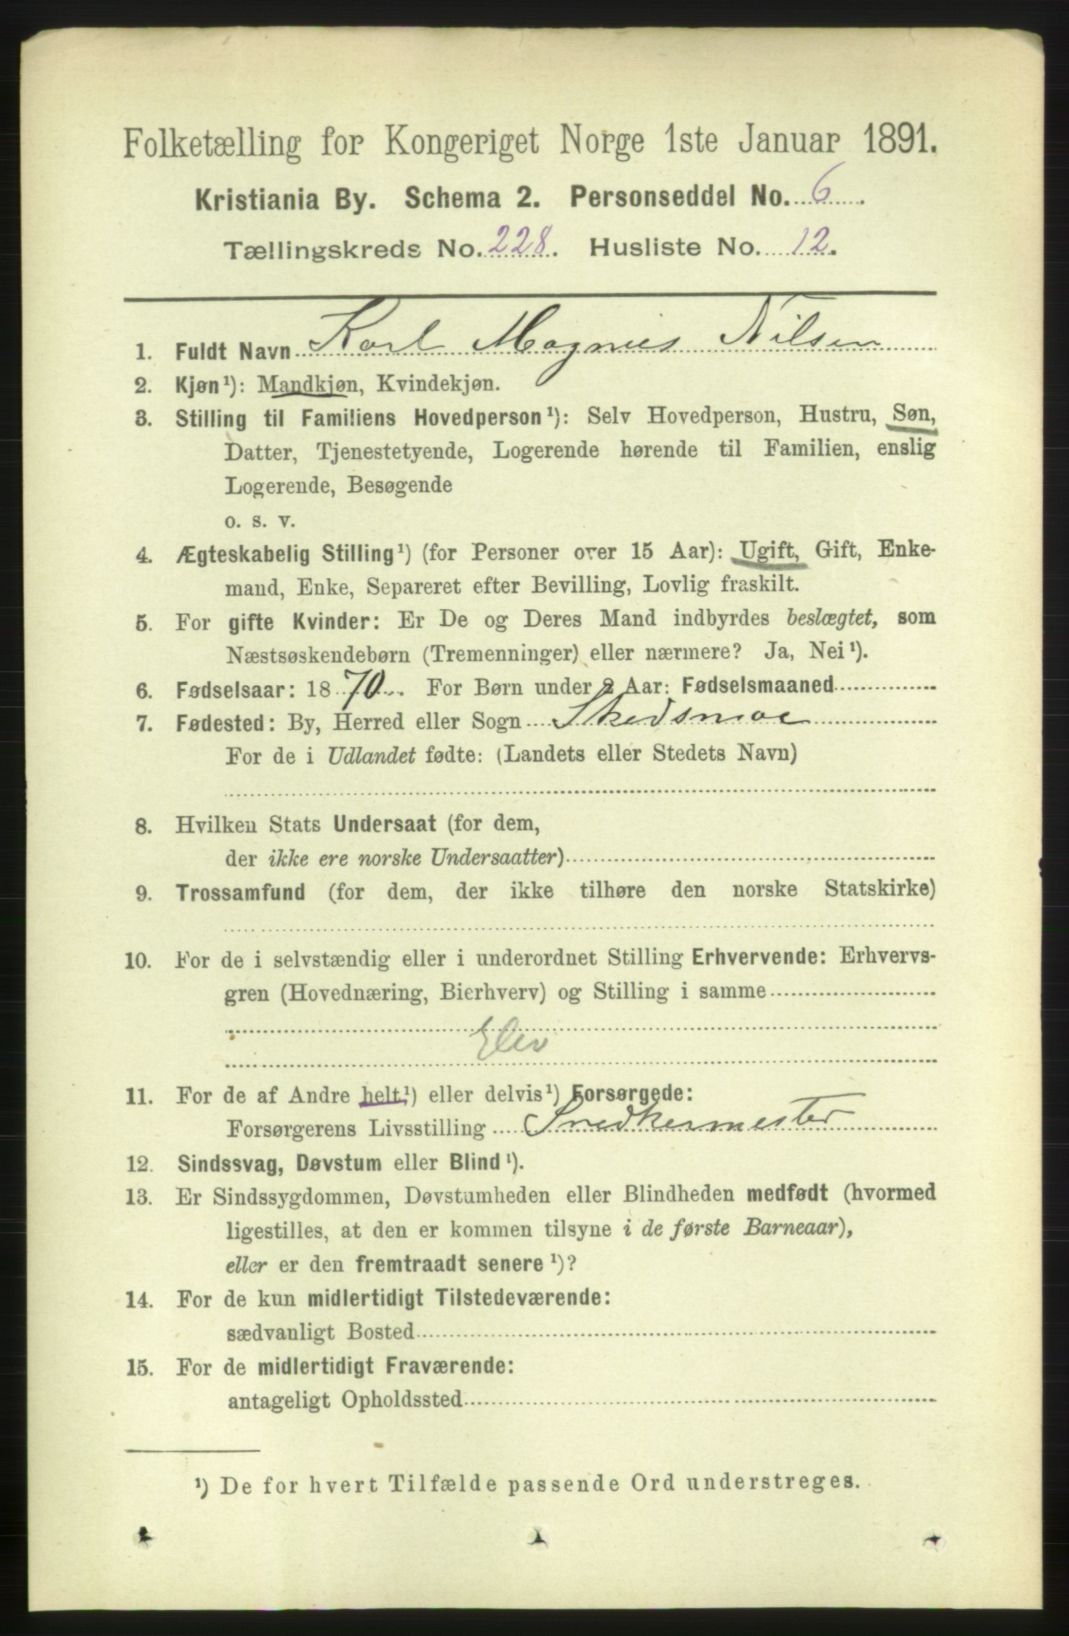 Folketælling for Kongeriget Norge 1ste Januar 1891.
Kristiania By. Schema 2. Personseddel No. 6.
Tællingskreds No. 228. Husliste No. 12.
1. Fuldt Navn Karl Magnus Nilsen
2. Kjøn¹): Mandkjøn, Kvindekjøn.
3. Stilling til Familiens Hovedperson¹): Selv Hovedperson, Hustru, Søn,
Datter, Tjenestetyende, Logerende hørende til Familien, enslig
Logerende, Besøgende
o. s. v.
4. Ægteskabelig Stilling¹) (for Personer over 15 Aar): Ugift, Gift, Enke-
mand, Enke, Separeret efter Bevilling, Lovlig fraskilt.
5. For gifte Kvinder: Er De og Deres Mand indbyrdes beslægtet, som
Næstsøskendebørn (Tremenninger) eller nærmere? Ja, Nei¹).
6. Fødselsaar: 1870. For Børn under 2 Aar: Fødselsmaaned
7. Fødested: By, Herred eller Sogn Skedsmoe
For de i Udlandet fødte: (Landets eller Stedets Navn)
8. Hvilken Stats Undersaat (for dem,
der ikke ere norske Undersaatter)
9. Trossamfund (for dem, der ikke tilhøre den norske Statskirke)
10. For de i selvstændig eller i underordnet Stilling Erhvervende: Erhvervs-
gren (Hovednæring, Bierhverv) og Stilling i samme
Elev
11. For de af Andre helt¹) eller delvis¹) Forsørgede:
Forsørgerens Livsstilling Snedkermester
12. Sindssvag, Døvstum eller Blind¹).
13. Er Sindssygdommen, Døvstumheden eller Blindheden medfødt (hvormed
ligestilles, at den er kommen tilsyne i de første Barneaar),
eller er den fremtraadt senere¹)?
14. For de kun midlertidigt Tilstedeværende:
sædvanligt Bosted
15. For de midlertidigt Fraværende:
antageligt Opholdssted
¹) De for hvert Tilfælde passende Ord understreges.